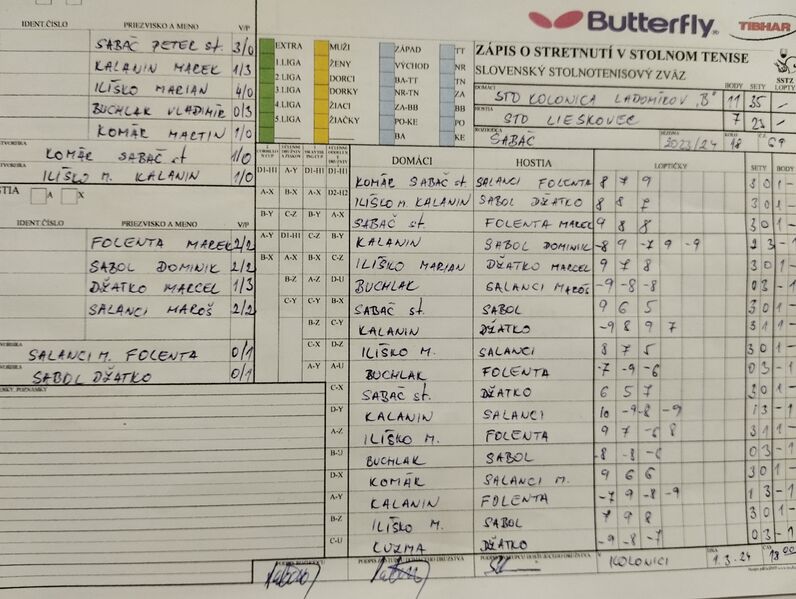 Butterfly TIBHAR
ZÁPIS O STRETNUTÍ V STOLNOM TENISE
SLOVENSKÝ STOLNOTENISOVÝ ZVÄZ
IDENT.ČÍSLO PRIEZVISKO A MENO V/P
SABAČ PETER st. 3/0
KALANIN MAREK 1/3
ILÍŠKO MARIAN 4/0
BUCHLAK VLADIMÍR 0/3
KOMÁR MARTIN 1/0
KOMÁR SABAČ st 1/0
ILÍŠKO M. KALANIN 1/0
A X
IDENT.ČÍSLO PRIEZVISKO A MENO V/P
FOLENTA MAREK 2/2
SABOL DOMINIK 2/2
DŽATKO MARCEL 1/3
SALANCI MAROŠ 2/2
SALANCI M. FOLENTA 0/1
SABOL DŽATKO 0/1
EXTRA MUŽI ZÁPAD TT
1.LIGA ŽENY VÝCHOD NR
2.LIGA DORCI BA-TT TN
3.LIGA DORKY NR-TN ZA
4.LIGA ŽIACI ZA-BB BB
5.LIGA ŽIAČKY PO-KE PO
BA KE
DOMÁCI STO KOLONICA LADOMÍROV "B" BODY 11 SETY 35
HOSTIA STO LIESKOVEC 7 23
ROZHODCA SABAČ SEZÓNA 2023/24 KOLO 18
DOMÁCI HOSTIA LOPTIČKY SETY BODY
D1-H1 A-Y D1-H1 D1-H1 KOMÁR SABAČ st. SALANCI FOLENTA 8 7 9 3 0 1 -
A-X B-X A-X D2-H2 ILÍŠKO M. KALANIN SABOL DŽATKO 8 8 7 3 0 1 -
B-Y C-Z B-Y A-X SABAČ st. FOLENTA MAREK 9 8 8 3 0 1 -
A-Y D1-H1 C-Z B-Y KALANIN SABOL DOMINIK -8 9 -7 9 -9 2 3 - 1
B-X A-X B-X C-Z ILÍŠKO MARIAN DŽATKO MARCEL 9 7 8 3 0 1 -
B-Z A-Z D-U BUCHLAK SALANCI MAROŠ -9 -8 -8 0 3 - 1
C-Y C-Y B-X SABAČ st. SABOL 9 6 5 3 0 1 -
B-Z C-Y KALANIN DŽATKO -9 8 9 7 3 1 1 -
C-X D-Z ILÍŠKO M. SALANCI 8 7 5 3 0 1 -
A-Y A-U BUCHLAK FOLENTA -7 -9 -6 0 3 - 1
C-X SABAČ st. DŽATKO 6 5 7 3 0 1 -
D-Y KALANIN SALANCI 10 -9 -8 -9 1 3 - 1
A-Z ILÍŠKO M. FOLENTA 9 7 -6 8 3 1 1 -
B-U BUCHLAK SABOL -8 -8 -6 0 3 - 1
D-X KOMÁR SALANCI M. 9 6 6 3 0 1 -
A-Y KALANIN FOLENTA -7 9 -8 -9 1 3 - 1
B-Z ILÍŠKO M. SABOL 7 9 8 3 0 1 -
C-U KUZMA DŽATKO -9 -8 -7 0 3 - 1
V KOLONICI DŇA 1.3.24 ČAS 18 00